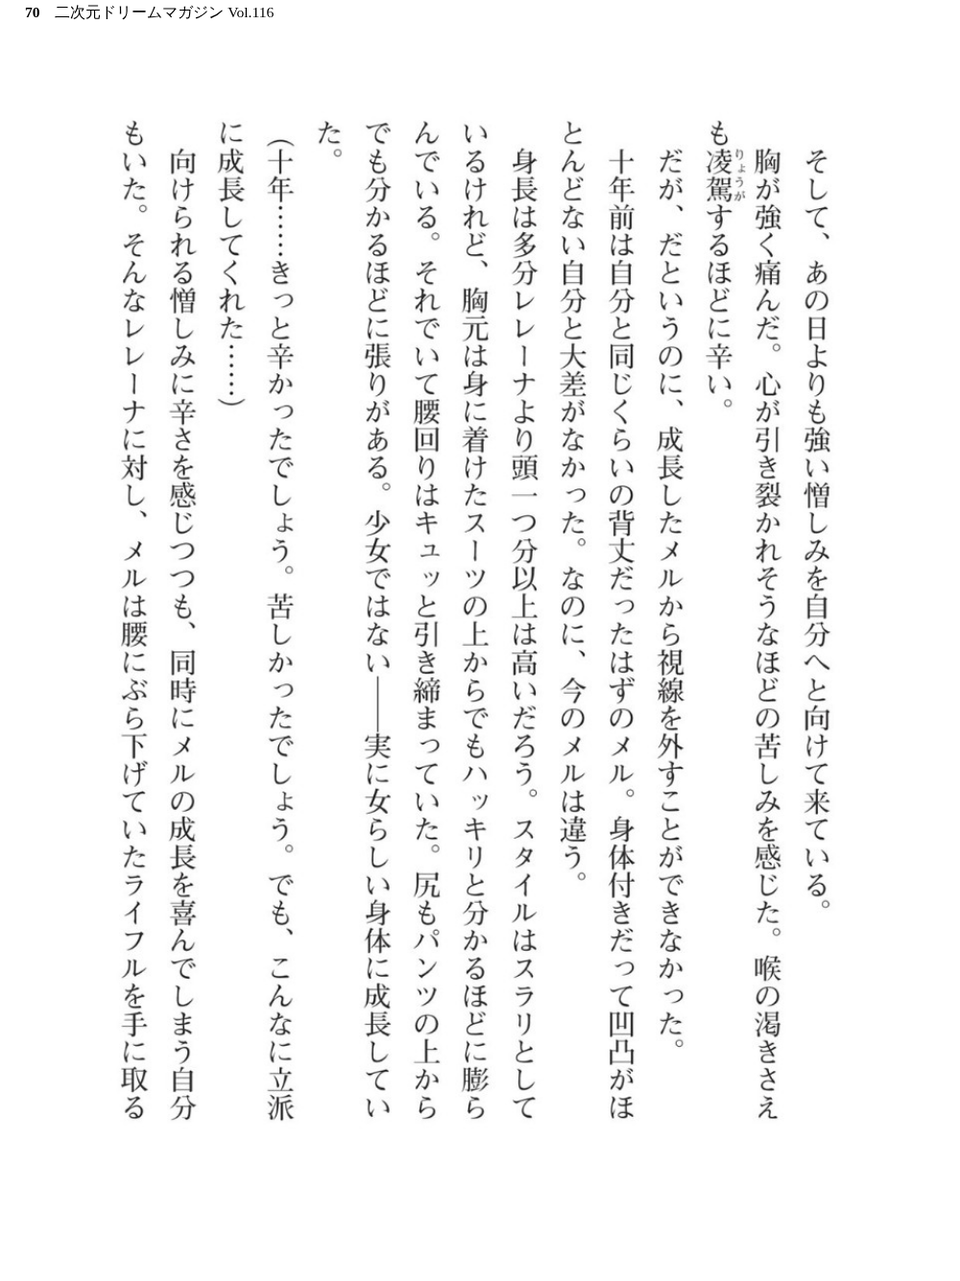 70 二次元ドリームマガジン Vol.116
そして、あの日よりも強い憎しみを自分へと向けて来ている。
胸が強く痛んだ。心が引き裂かれそうなほどの苦しみを感じた。喉の渇きさえ
も凌駕するほどに辛い。
だが、だというのに、成長したメルから視線を外すことができなかった。
十年前は自分と同じくらいの背丈だったはずのメル。身体付きだって凹凸がほ
とんどない自分と大差がなかった。なのに、今のメルは違う。
身長は多分レレーナより頭一つ分以上は高いだろう。スタイルはスラリとして
いるけれど、胸元は身に着けたスーツの上からでもハッキリと分かるほどに膨ら
んでいる。それでいて腰回りはキュッと引き締まっていた。尻もパンツの上から
でも分かるほどに張りがある。少女ではない――実に女らしい身体に成長してい
た。
（十年……きっと辛かったでしょう。苦しかったでしょう。でも、こんなに立派
に成長してくれた……）
向けられる憎しみに辛さを感じつつも、同時にメルの成長を喜んでしまう自分
もいた。そんなレレーナに対し、メルは腰にぶら下げていたライフルを手に取る